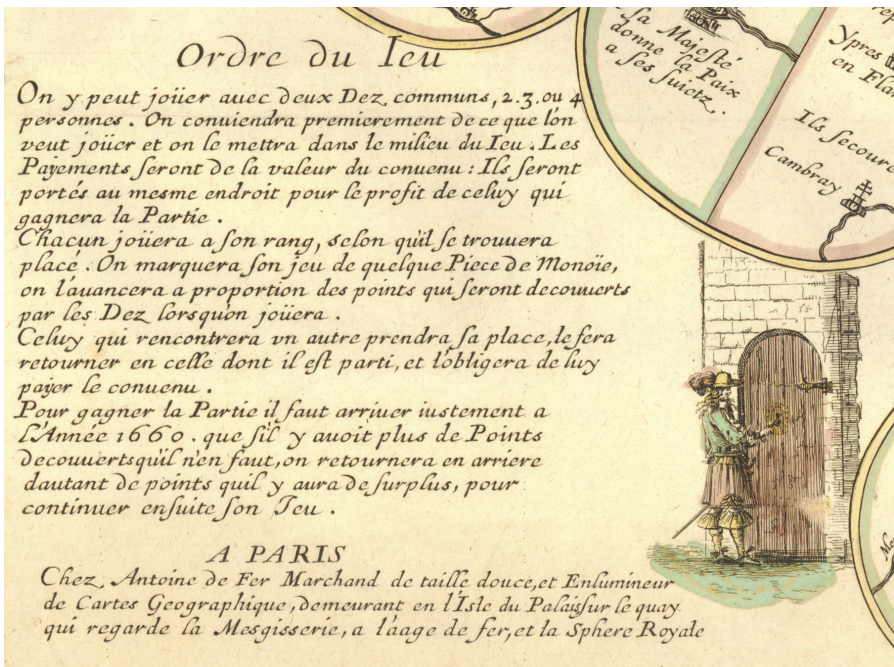 Ordre du Ieu
On y peut joüer auec deux Dez communs, 2.3. ou 4
personnes. On conuiendra premierement de ce que l'on
veut joüer et on le mettra dans le milieu du Ieu. Les
Payements seront de la valeur du conuenu: Ils seront
portés au mesme endroit pour le profit de celuy qui
gagnera la Partie.
Chacun joüera a son rang, selon qu'il se trouuera
placé. On marquera son jeu de quelque Piece de Monoïe,
on l'auancera a proportion des points qui seront decouuerts
par les Dez lorsqu'on joüera.
Celuy qui rencontrera vn autre prendra sa place, le fera
retourner en celle dont il est parti, et l'obligera de luy
païer le conuenu.
Pour gagner la Partie il faut arriuer iustement a
l'Année 1660. que s'il y auoit plus de Points
decouuerts qu'il n'en faut, on retournera en arriere
dautant de points quil y aura de surplus, pour
continuer ensuite son Jeu.
A PARIS
Chez Antoine de Fer Marchand de taille douce, et Enlumineur
de Cartes Geographique, demeurant en l'Isle du Palais sur le quay
qui regarde la Mesgisserie, a l'aage de fer, et la Sphere Royale
sa Majesté
donne la Paix
a ses suietz.
Ypres
en Flan
Ils secoure
Cambray